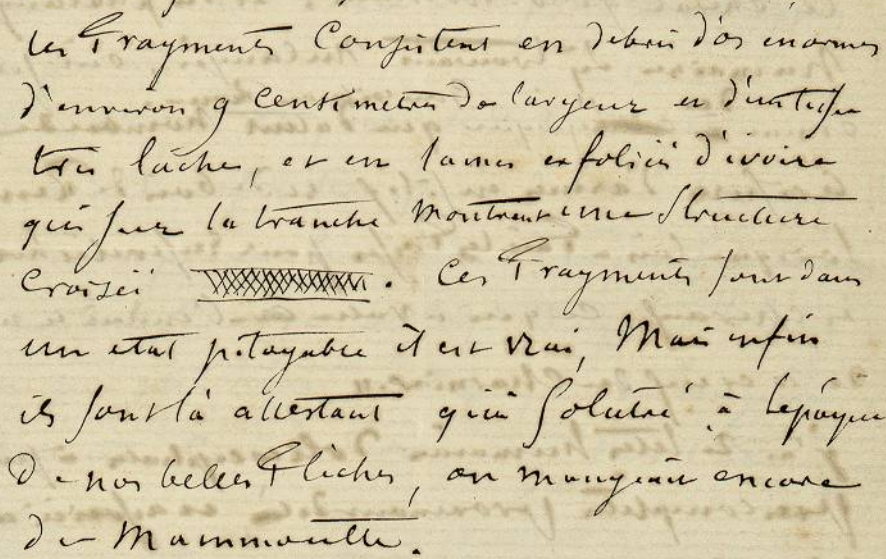 les Fragments Consistent en debris d'os enormes
d'environ 9 Centimetres de largeur et d'un tissu
très lâche, et en lames exfoliées d'ivoire
qui sur la tranche montrent une Structure
Croisée . Ces Fragments sont dans
un etat pitoyable il est vrai, Mais enfin
ils sont là attestant qu'à Solutré à l'epoque
de nos belles Flèches, on mangeait encore
du Mammouth.